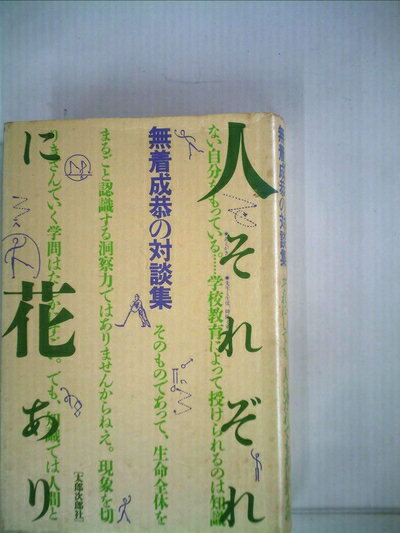 人それぞれ
ない自分をもっている。……学校教育によって授けられるのは知識
無着成恭の対談集
そのものであって、生命全体を
まるごと認識する洞察力ではありませんからねえ。現象を切
りきざんでいく学問はたしか。でも、知識では人間と
に花あり
太郎次郎社
無着成恭の対談集